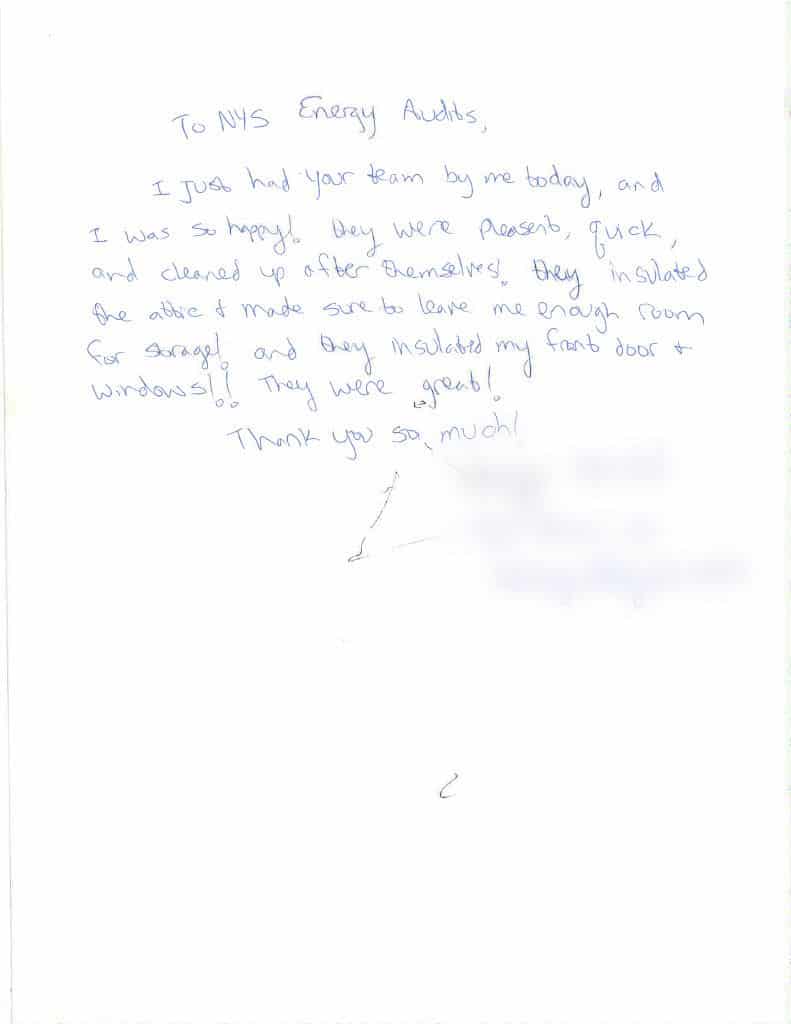 To NYS Energy Audits,
I Just had your team by me today, and
I was so happy! they were pleasent, quick,
and cleaned up after themselves! they insulated
the attic & made sure to leave me enough room
for sorage! and they insulated my front door &
windows!! They were great!
Thank you so, much!